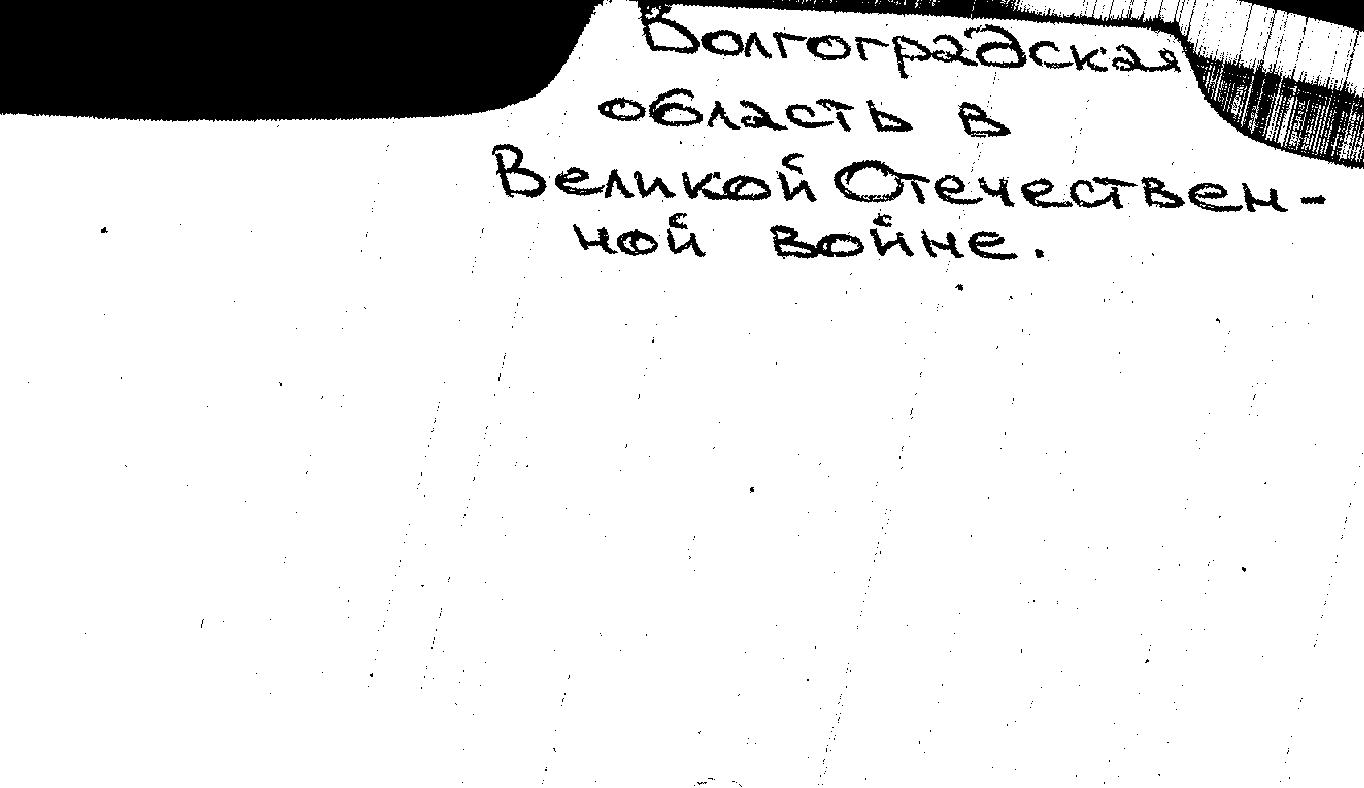 Волгоградская
область в
Великой Отечествен-
ной войне.